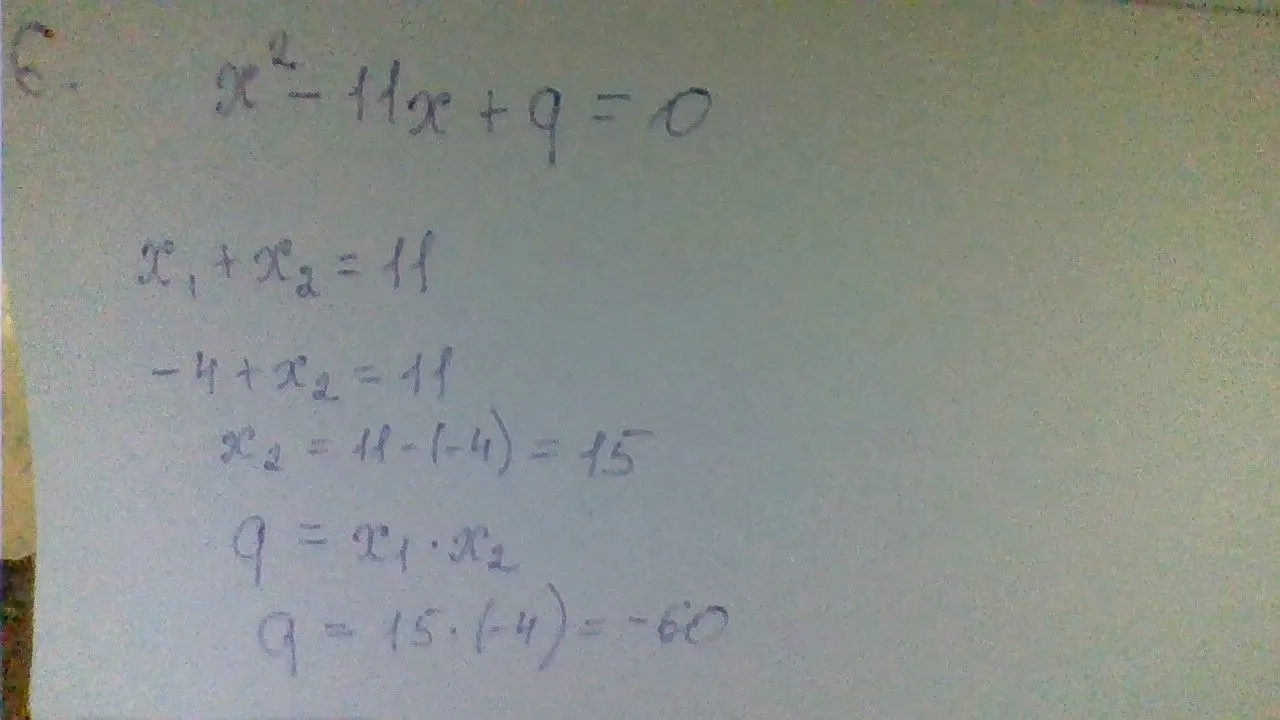 6.
x² - 11x + q = 0
x₁ + x₂ = 11
-4 + x₂ = 11
x₂ = 11 - (-4) = 15
q = x₁ · x₂
q = 15 · (-4) = -60